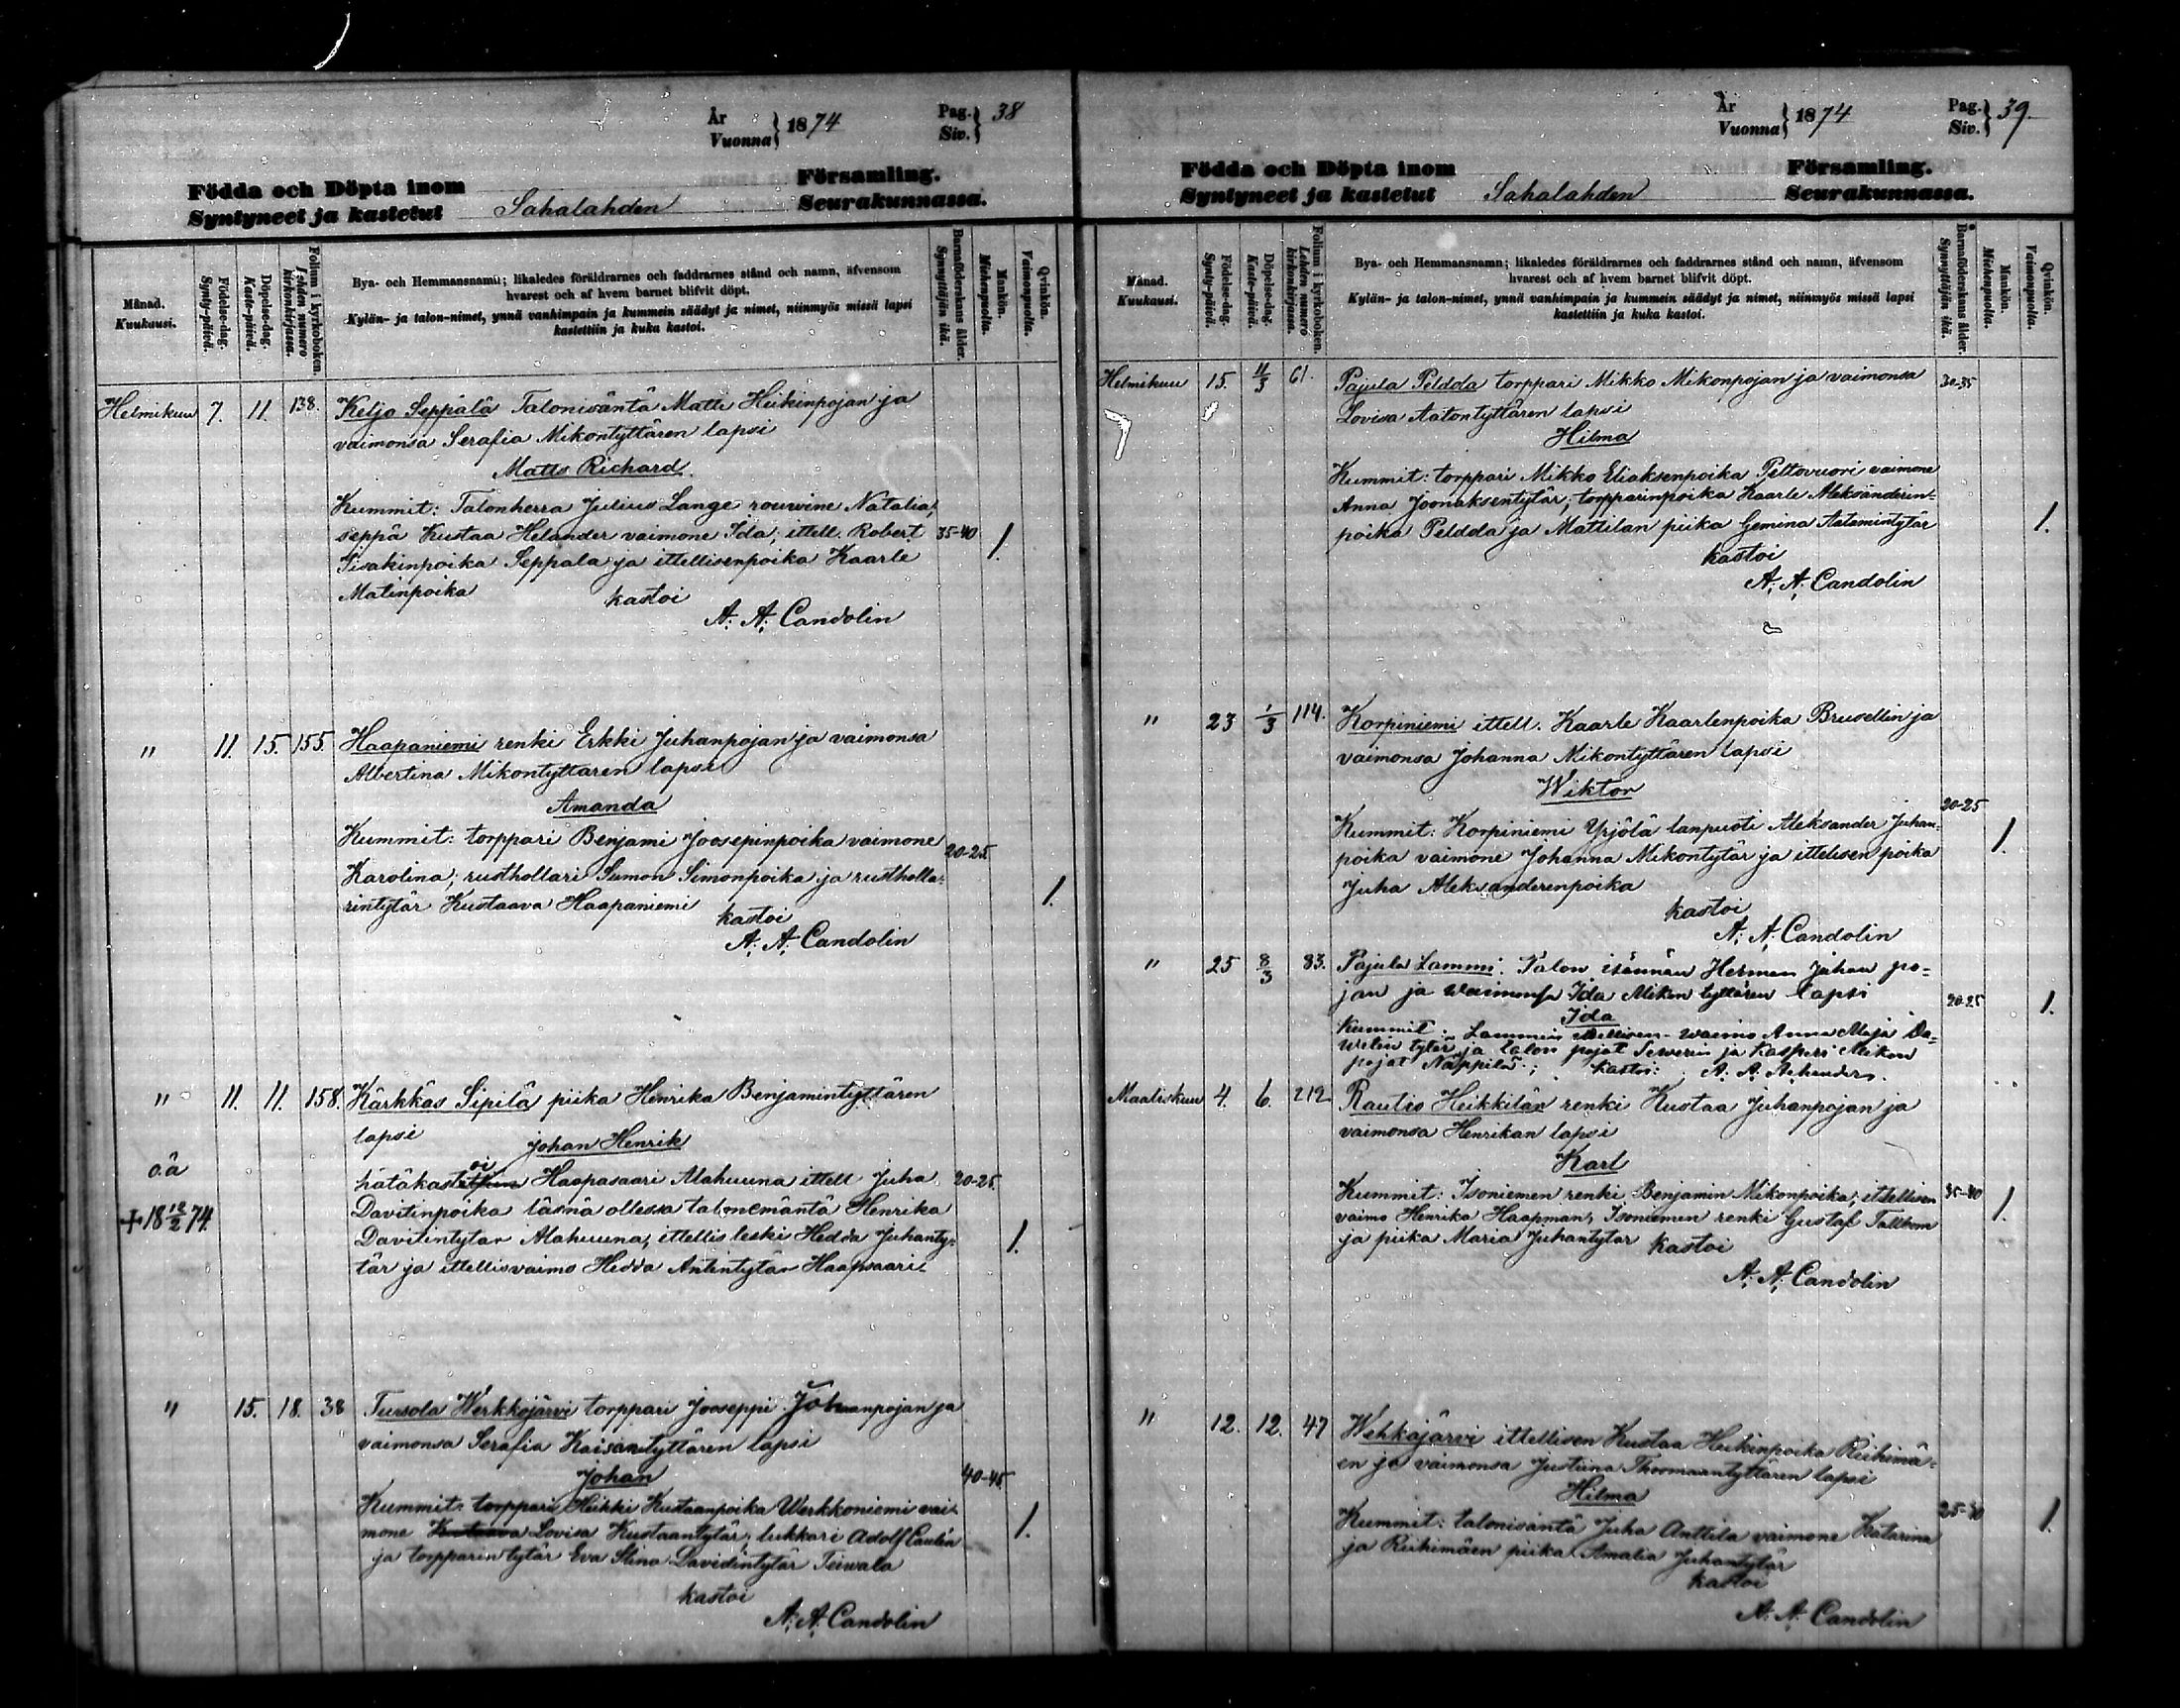 År
Vuonna } 1874
Pag.
Siv. } 38
Födda och Döpta inom Församling.
Syntyneet ja kastetut Sahalahden Seurakunnassa.
Månad.
Kuukausi.
Födelse-dag.
Synty-päivä.
Döpelse-dag.
Kaste-päivä.
Folium i kyrkoboken.
Lehden numero
kirkonkirjassa.
Bya- och Hemmansnamn; likaledes föräldrarnes och faddrarnes stånd och namn, äfvensom
hvarest och af hvem barnet blifvit döpt.
Kylän- ja talon-nimet, ynnä vanhimpain ja kummein säädyt ja nimet, niinmyös missä lapsi
kastettiin ja kuka kastoi.
Barnaföderskans ålder.
Synnyttäjän ikä.
Mankön.
Miehenpuolta.
Qvinkön.
Vaimonpuolta.
Helmikuu 7. 11. 138. Keljo Seppälä Talonisäntä Matti Heikinpojan ja
vaimonsa Serafia Mikontyttären lapsi
Matts Richard.
Kummit: Talonherra Julius Lange rouwine Natalia;
seppä Kustaa Helander vaimone Ida; ittell. Robert 35-40 1.
Iisakinpoika Seppala ja ittellisenpoika Kaarle
Matinpoika kastoi
A. A. Candolin
" 11. 15. 155 Haapaniemi renki Erkki Juhanpojan ja vaimonsa
Albertina Mikontyttaren lapsi
Amanda
Kummit: torppari Benjami Joosepinpoika vaimone 20-25.
Karolina; rusthollari Simon Simonpoika ja rustholla-
rintytär Kustaava Haapaniemi 1.
kastoi
A. A. Candolin
" 11. 11. 158. Kärkkäs Sipilä piika Henrika Benjamintyttären
lapsi Johan Henrik
o.ä hätäkastoi Haapasaari Alahuuna ittell Juha 20-25.
+ 18 12/2 74 Davitinpoika läsnä ollessa talonemäntä Henrika
Davitintytar Alahuuna, ittellis leski Hedda Juhanty- 1.
tär ja ittellisvaimo Hedda Antintytär Haapsaari
" 15. 18. 38 Tursola Werkkojärvi torppari Jooseppi Johanpojan ja
vaimonsa Serafia Kaisantyttären lapsi
Johan 40-45.
Kummit: torppari Heikki Kustaanpoika Werkkoniemi vai-
mone Kustaava Lovisa Kustaantytär; lukkari Adolf Caulin 1.
ja torpparintytär Eva Stina Davidintytär Teiwala
kastoi
A. A. Candolin
År
Vuonna } 1874
Pag.
Siv. } 39.
Födda och Döpta inom Församling.
Syntyneet ja kastetut Sahalahden Seurakunnassa.
Månad.
Kuukausi.
Födelse-dag.
Synty-päivä.
Döpelse-dag.
Kaste-päivä.
Folium i kyrkoboken.
Lehden numero
kirkonkirjassa.
Bya- och Hemmansnamn; likaledes föräldrarnes och faddrarnes stånd och namn, äfvensom
hvarest och af hvem barnet blifvit döpt.
Kylän- ja talon-nimet, ynnä vanhimpain ja kummein säädyt ja nimet, niinmyös missä lapsi
kastettiin ja kuka kastoi.
Barnaföderskans ålder.
Synnyttäjän ikä.
Mankön.
Miehenpuolta.
Qvinkön.
Vaimonpuolta.
Helmikuu 15. 11/3 61. Pajula Peldda torppari Mikko Mikonpojan ja vaimonsa 30-35
Lovisa Aatontyttären lapsi
Hilma
Kummit: torppari Mikko Eliaksenpoika Peltovuori vaimone
Anna Joonaksentytär; torpparinpoika Kaarle Aleksänderin-
poika Peldda ja Mattilan piika Gemina Aatamintytär 1.
kastoi
A. A. Candolin
" 23 1/3 114. Korpiniemi ittell. Kaarle Kaarlenpoika Brusellin ja
vaimonsa Johanna Mikontyttären lapsi
Wiktor 20-25
Kummit: Korpiniemi Yrjölä lanpuoti Aleksander Juhan- 1.
poika vaimone Johanna Mikontytär ja ittelisen poika
Juha Aleksanderenpoika
kastoi
A. A. Candolin
" 25 8/3 83. Pajula Lammi. Talon isännän Herman Juhan po-
jan ja waimonsa Ida Mikon tyttären lapsi 20-25 1.
Ida
Kummit: Lammin ittellisen waimo Anna Maja Da-
witin tytär ja talon pojat Sewerin ja Kasperi Mikon
pojat Näppilä; kastoi: A. A.
Maaliskuu 4. 6. 212 Rautio Heikkilän renki Kustaa Juhanpojan ja
vaimonsa Henrikan lapsi
Karl
Kummit: Isoniemen renki Benjamin Mikonpoika; ittellisen 35-40 1.
vaimo Henrika Haapman, Isoniemen renki Gustaf Tallbom
ja piika Maria Juhantytar kastoi
A. A. Candolin
" 12. 12. 47 Wehkäjärvi ittellisen Kustaa Heikinpoika Riihimä-
en ja vaimonsa Justiina Thoomaantyttären lapsi
Hilma 25-30 1.
Kummit: talonisäntä Juha Anttila vaimone Katarina
ja Riihimäen piika Amalia Juhantytär
kastoi
A. A. Candolin